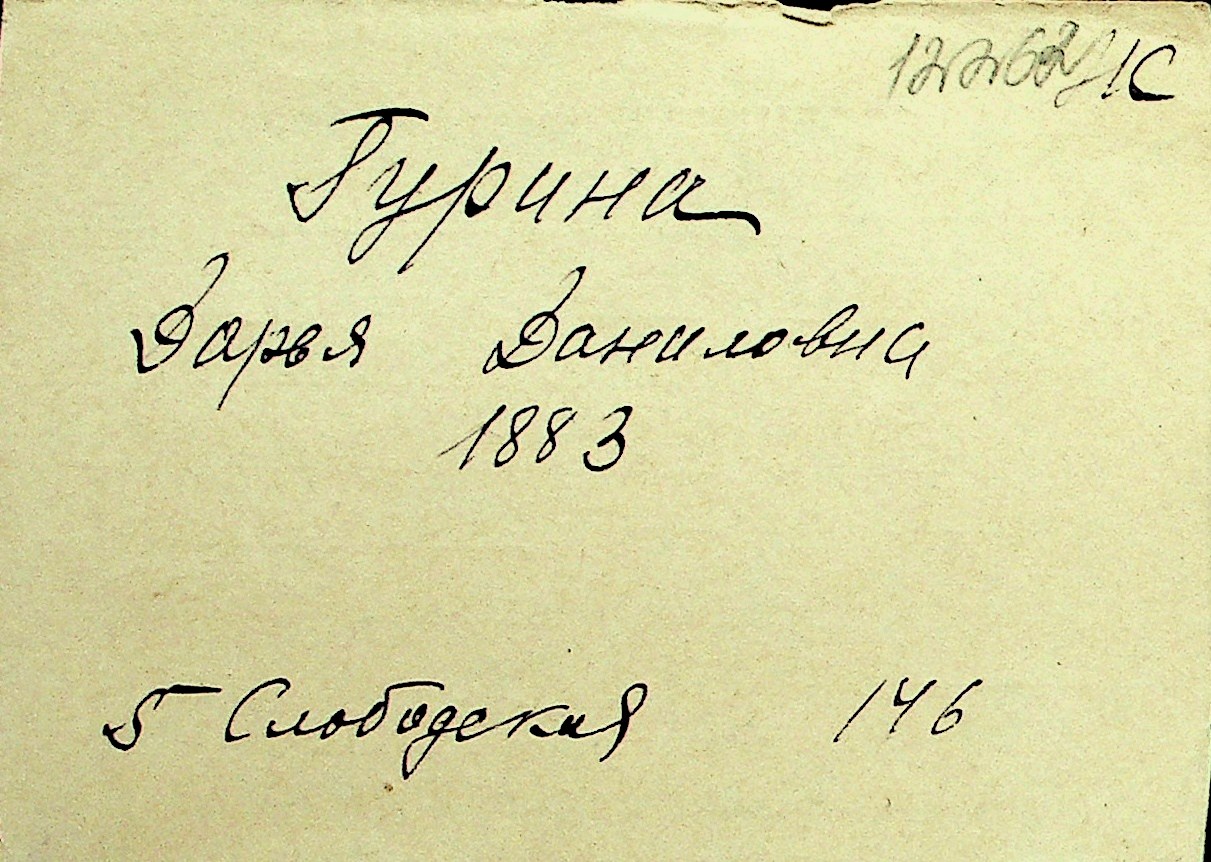 Гурина
Дарья Даниловна
1883
5 Слободская 146